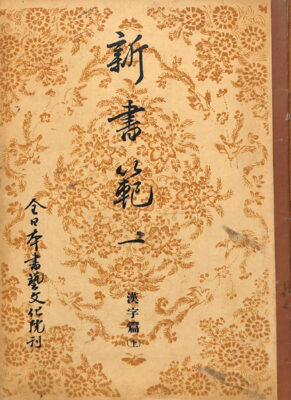 新書範一
漢字篇(上)
全日本書藝文化院刊